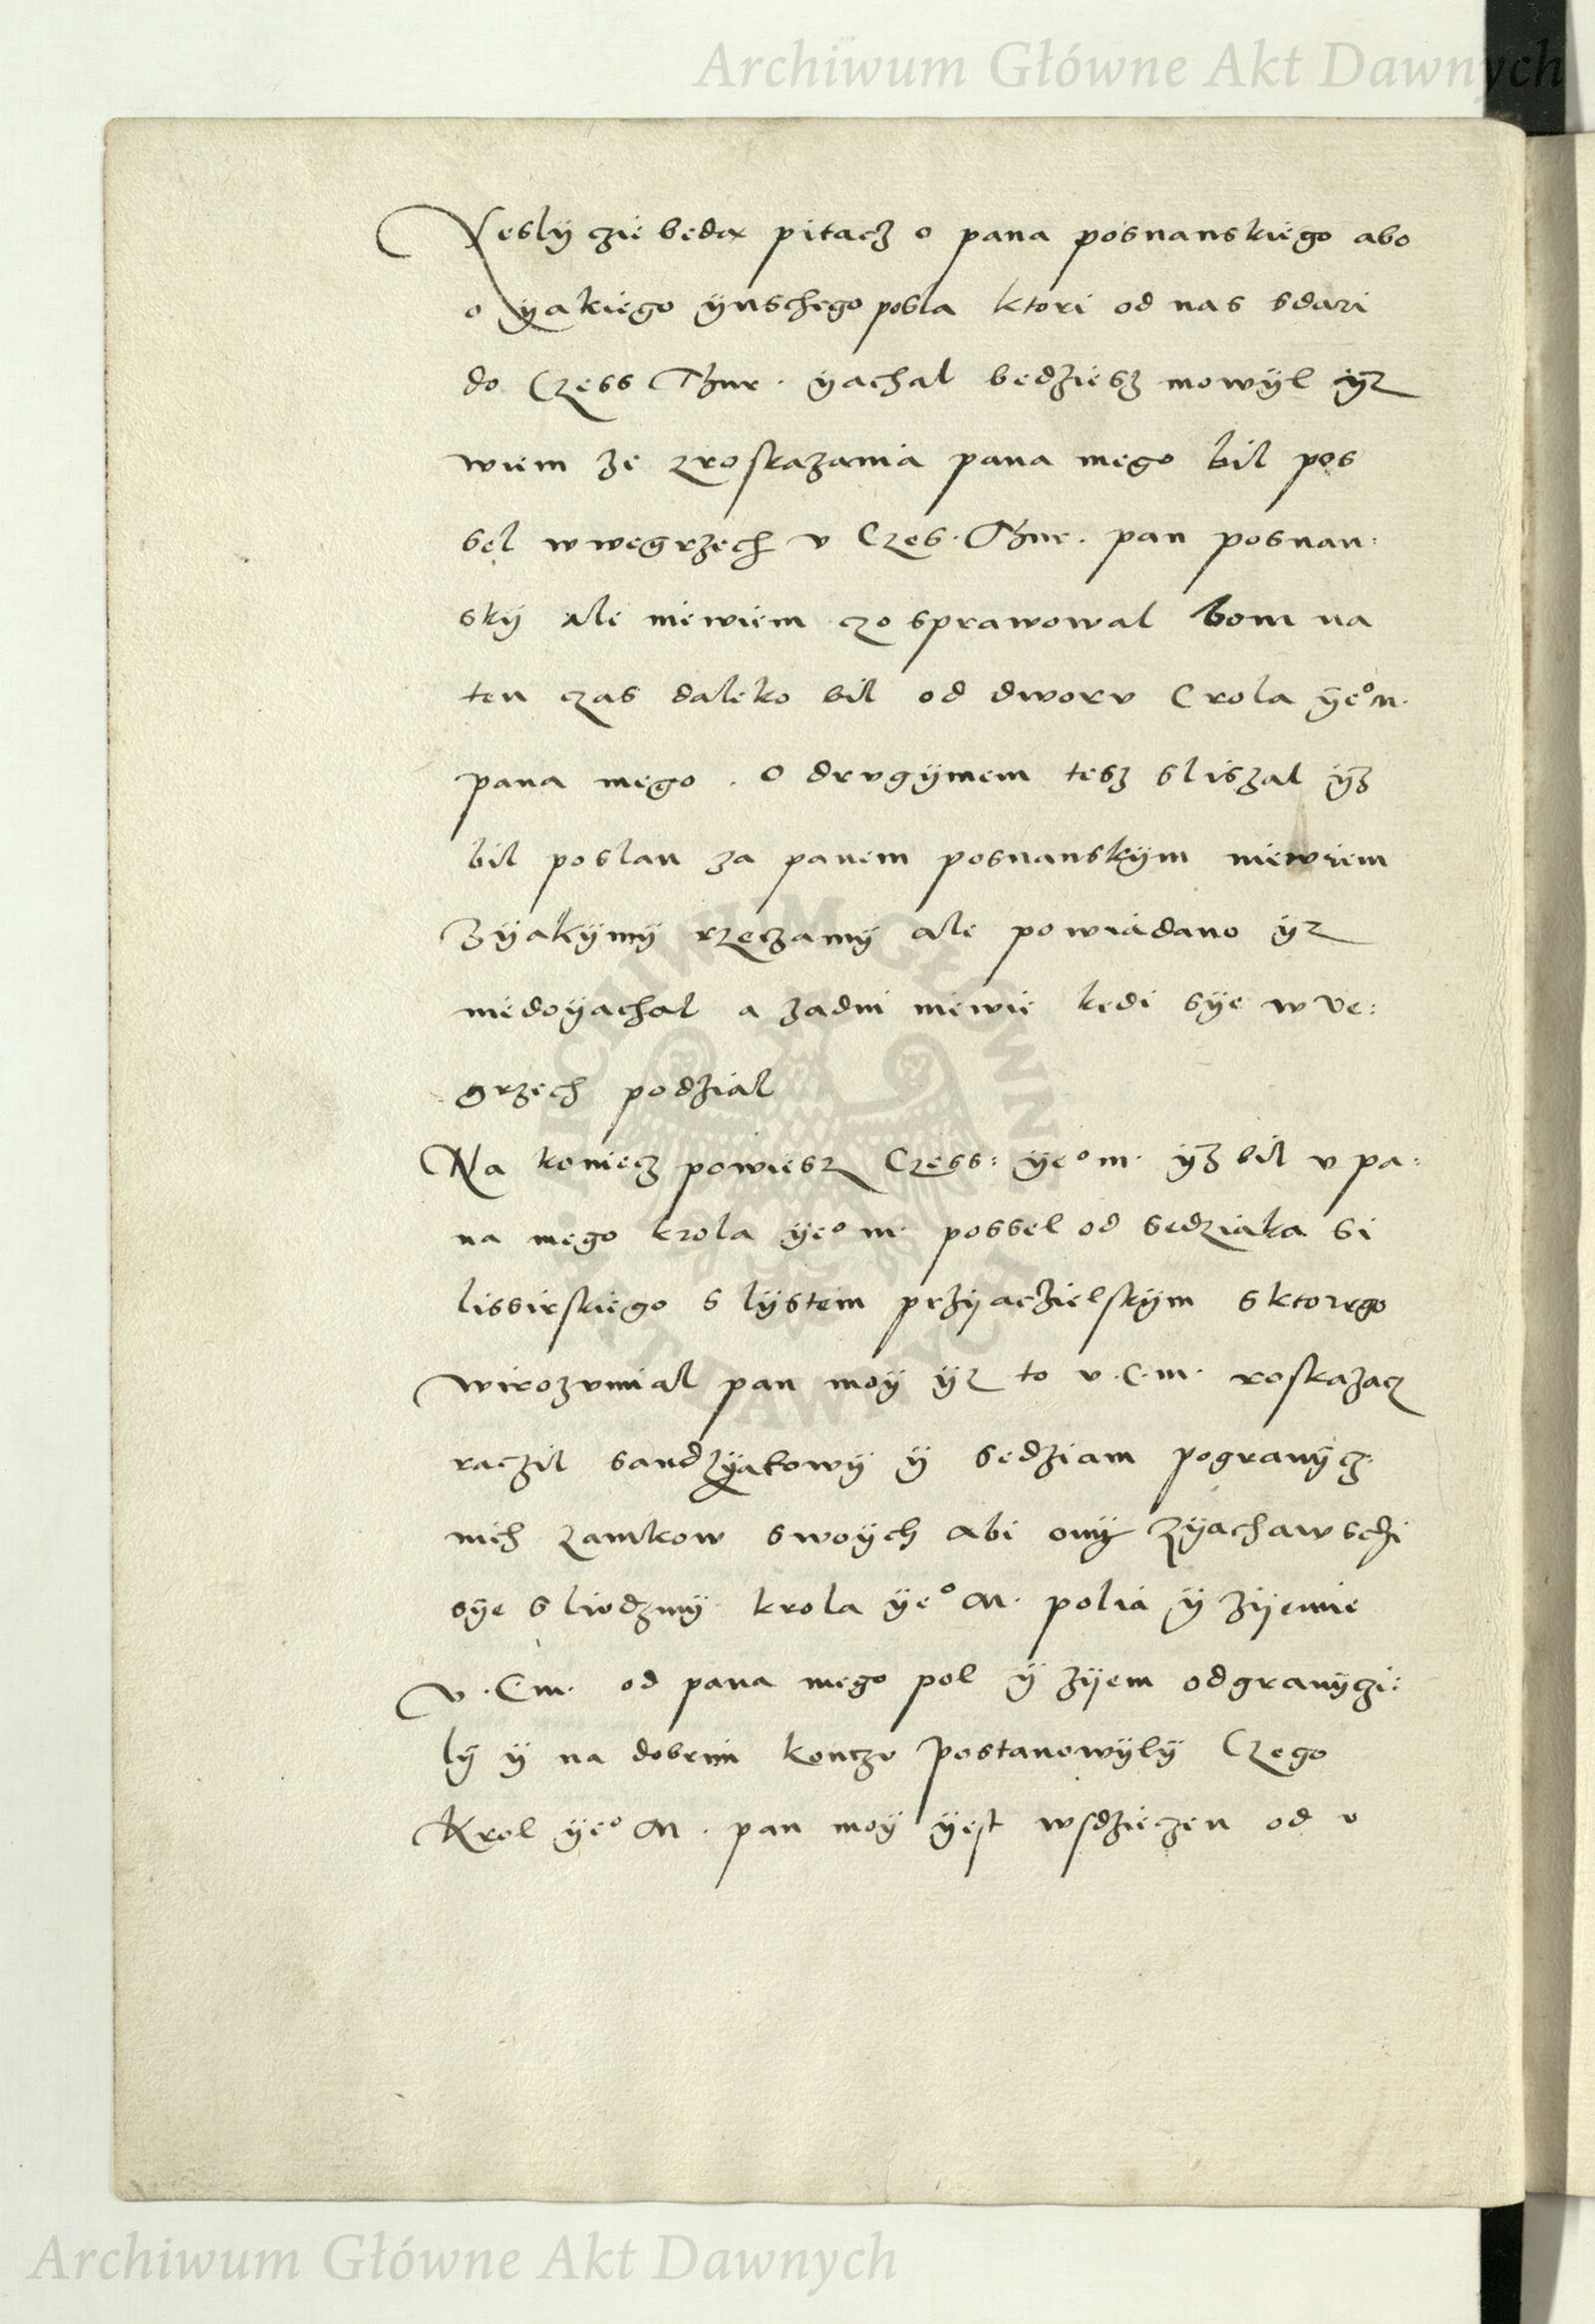 Archiwum Główne Akt Dawnych
Yeslÿ czie bedą pitacz o pana posnanskiego abo
o ÿakiego ÿnschego posla ktori od nas sdari
do Czess Thur. ÿachal bedziesz mowÿl ÿz
wiem ze zroskazania pana mego bil pos
sel w wegrzech v Czes. Thur. pan posnan:
skÿ ale niewiem czo sprawowal bom na
ten czas daleko bil od dworv Crola ÿeº m.
pana mego. O drvgÿmem tesz sliszal ÿz
bil poslan za panem posnanskÿm niewiem
zÿakÿmÿ rzeczamÿ ale powiadano ÿz
niedoÿachal a zadni niewie kedi sÿe w ve:
grzech podzial
Na koniecz powiesz Czess: ÿeº m. ÿz bil v pa:
na mego krola ÿeº m. possel od sedziaka si
lissirskiego s lÿstem przÿaczielskÿm s ktorego
wirozvmial pan moÿ ÿz to v. C. m. roskazacz
raczil sandzÿakowÿ ÿ sedziam pogranÿcz
nich zamkow swoÿch abi onÿ zÿachawschi
sÿe s liudzmÿ krola ÿeº M. polia ÿ zÿemie
v. C m. od pana mego pol ÿ zÿem odgranÿczi:
lÿ ÿ na dobrim konczv postanowÿlÿ Czego
Krol ÿeº M. pan moÿ ÿest wsdzieczen od v
ARCHIWUM GŁÓWNE AKT DAWNYCH
Archiwum Główne Akt Dawnych